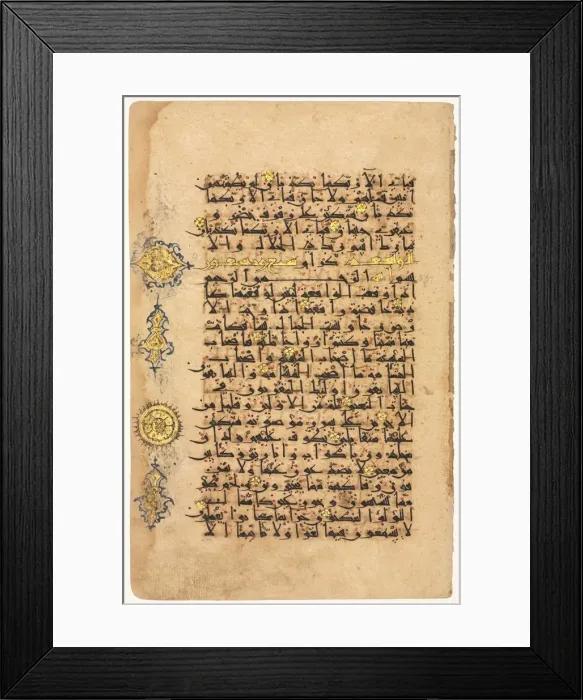 فبأي آلاء ربكما تكذبان لم يطمثهن
إنس قبلهم ولا جان فبأي آلاء ربكما
تكذبان متكئين على رفرف خضر و
عبقري حسان فبأي آلاء ربكما تكذبان
تبرك اسم ربك ذي الجلال والإ
كرام الواقعة سبع وتسعون
بسم الله الرحمن الرحيم
إذا وقعت الواقعة ليس لوقعتها
كاذبة خافضة رافعة إذا رجت الأر
ض رجا وبست الجبال بسا فكانت
هباء منبثا وكنتم أزواجا ثلثة فأصحاب
الميمنة ما أصحاب الميمنة وأصحاب
المشئمة ما أصحاب المشئمة والسابقو
ن السابقون أولئك المقربون في
جنات النعيم ثلة من الأولين وقليل من
الآخرين على سرر موضونة متكئين
عليها متقابلين يطوف عليهم ولدان
مخلدون بأكواب وأباريق وكأس
من معين لا يصدعون عنها ولا ينز
فون وفاكهة مما يتخيرون ولحم طير
مما يشتهون وحور عين كأمثال
اللؤلؤ المكنون جزاء بما كانوا يعملون
لا يسمعون فيها لغوا ولا تأثيما إلا